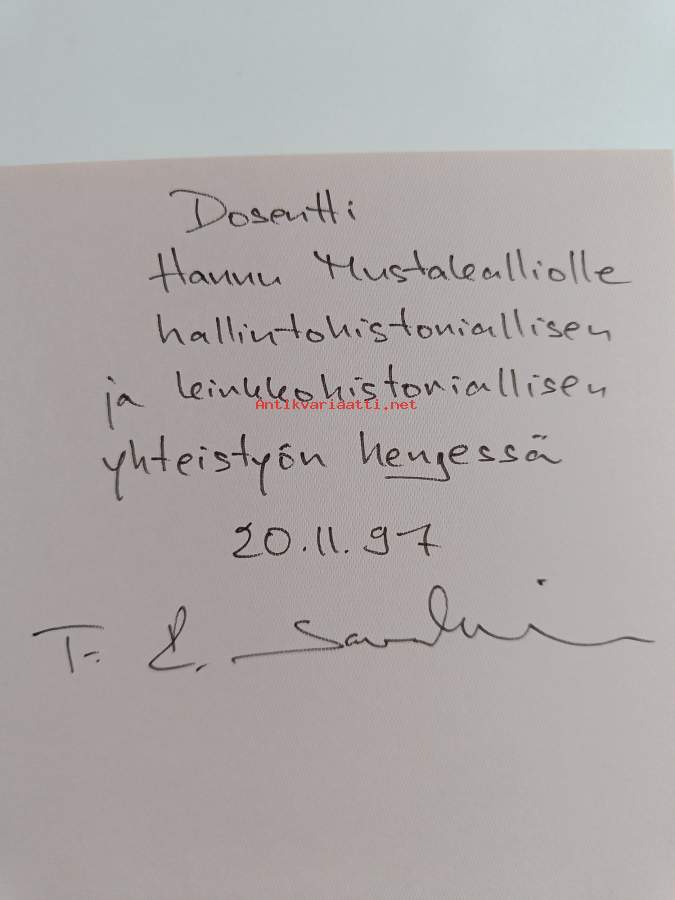 Dosentti
Hannu Mustakalliolle
hallintohistoriallisen
ja kirkkohistoriallisen
Antikvariaatti.net
yhteistyön hengessä
20.11.97
T. E.